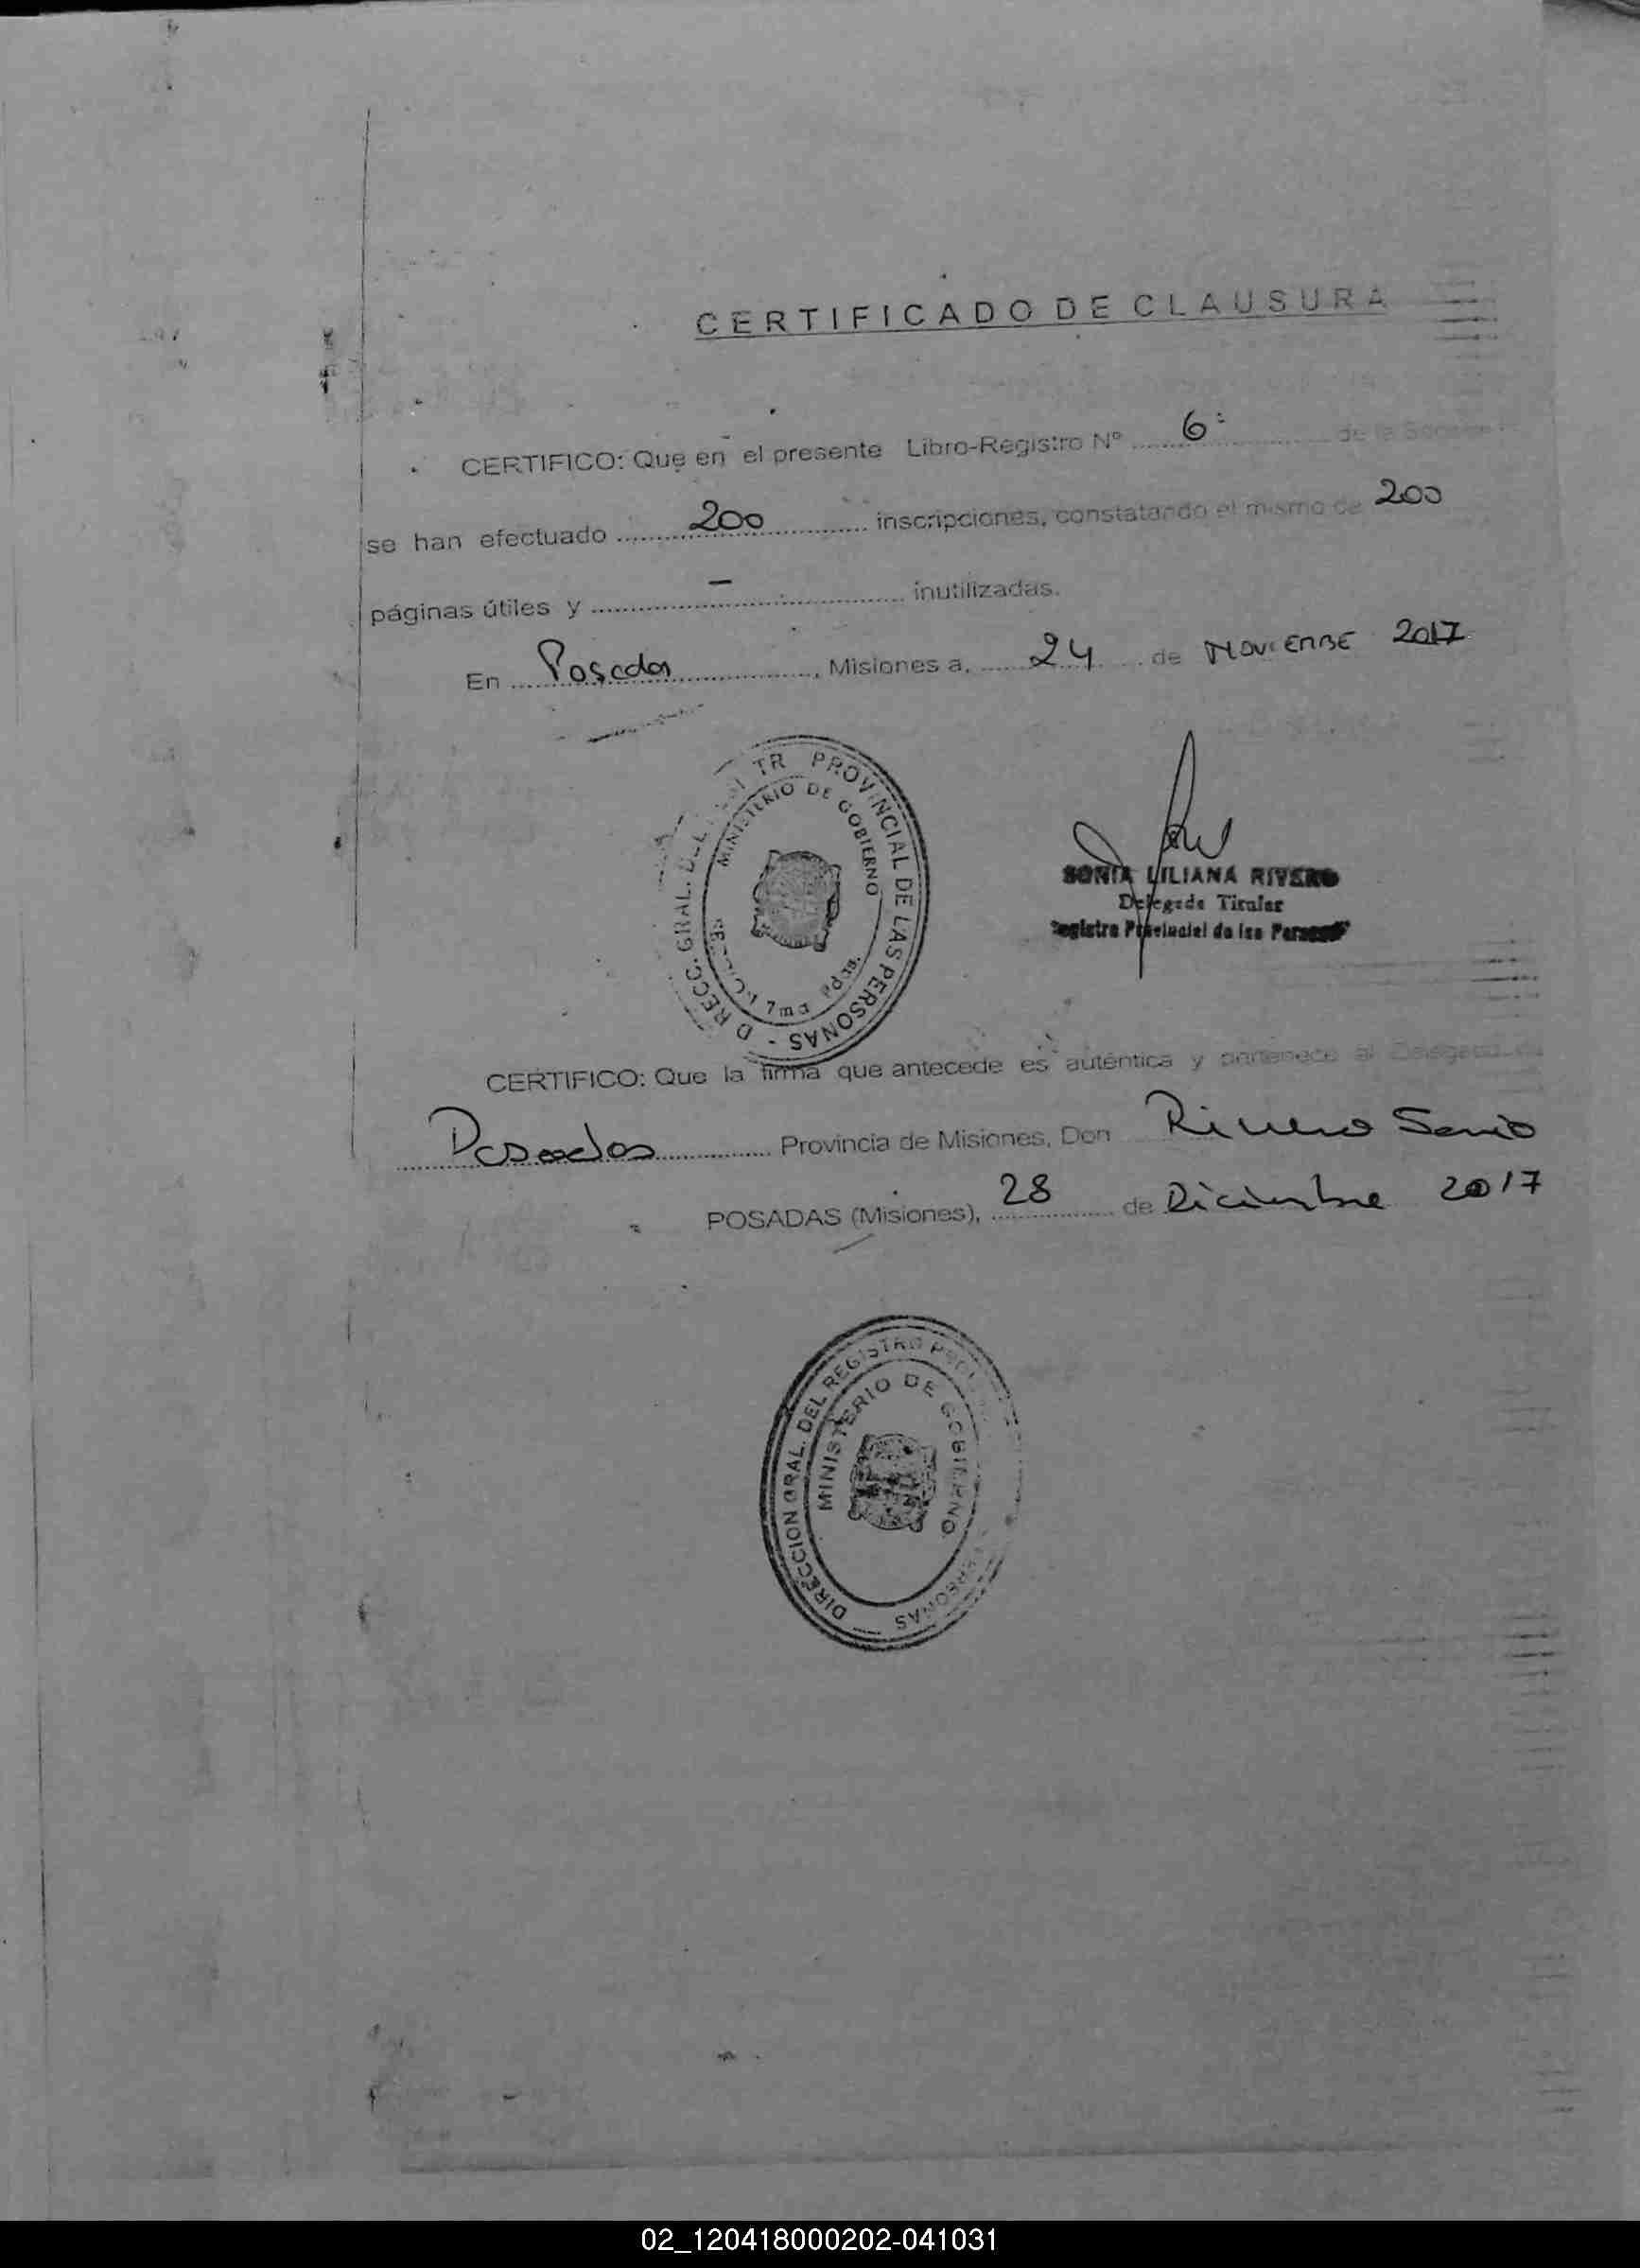 CERTIFICADO DE CLAUSURA
CERTIFICO: Que en el presente Libro-Registro Nº 6: de la
se han efectuado 200 inscripciones, constatando el mismo de 200
páginas útiles y – inutilizadas.
En Posadas, Misiones a, 24 de NOVIEMBRE 2017
PROVINCIAL DE LAS PERSONAS - D RECC. GRAL. DEL
MINISTERIO DE GOBIERNO
7ma Pdas.
SONIA LILIANA RIVERO
Delegada Titular
Registro Provincial de las Personas
CERTIFICO: Que la firma que antecede es auténtica y pertenece al Delegado de
Posadas Provincia de Misiones, Don Rivero Sonia
POSADAS (Misiones), 28 de Diciembre 2017
DIRECCION GRAL. DEL REGISTRO PERSONAS
MINISTERIO DE GOBIERNO
02_120418000202-041031